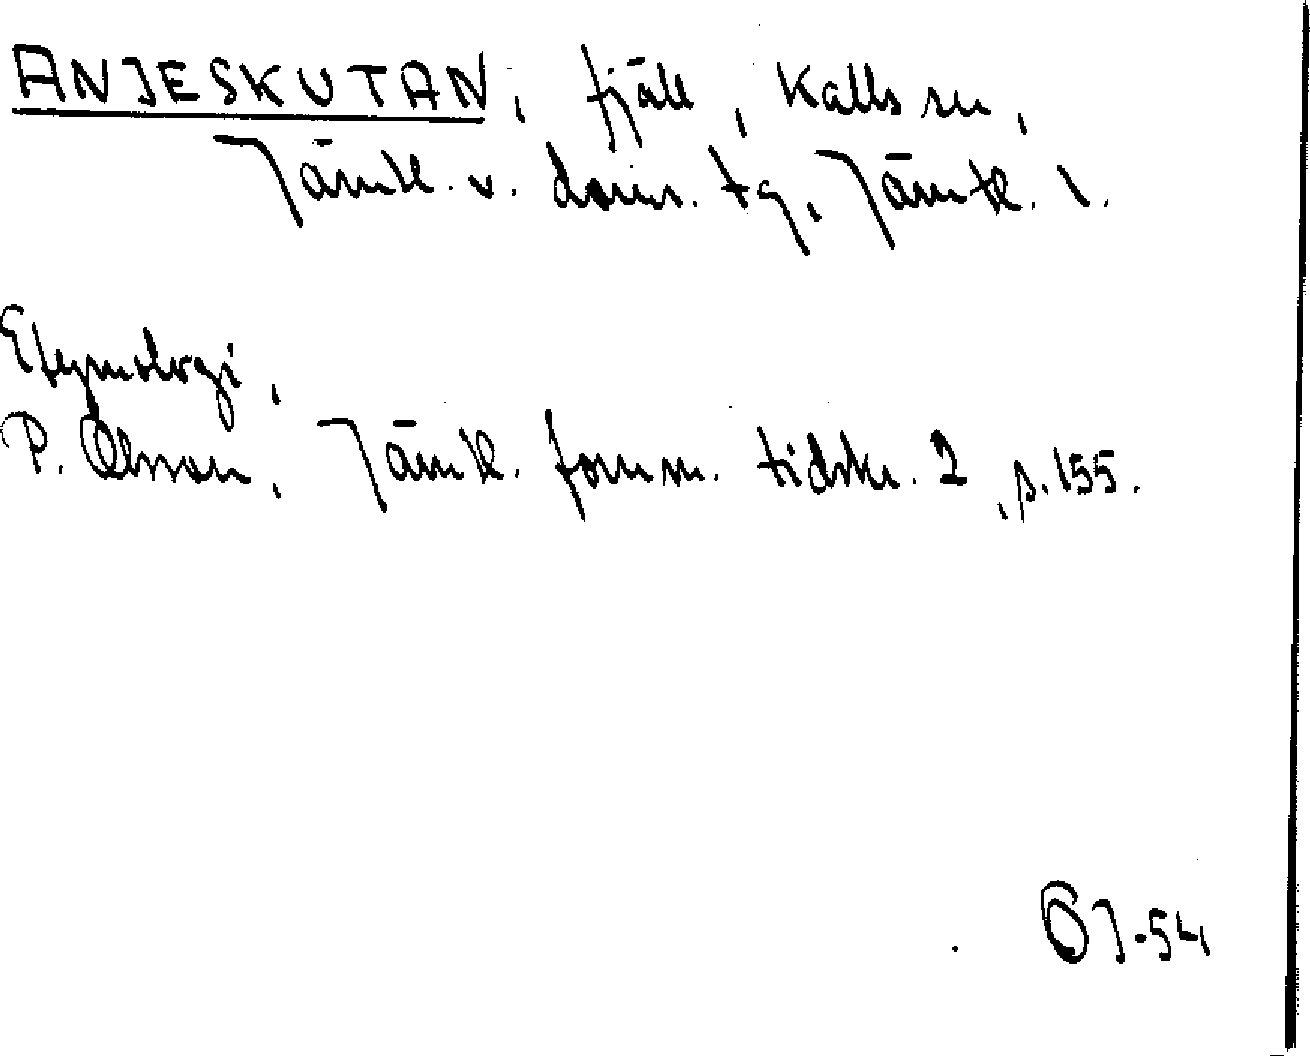 ANJESKUTAN, fjäll, Kalls sn,
Jämtl. v. doms. tg, Jämtl. l.
Etymologi,
P. Olsson, Jämtl. fornm. tidskr. 2, s. 155.
OJ-54